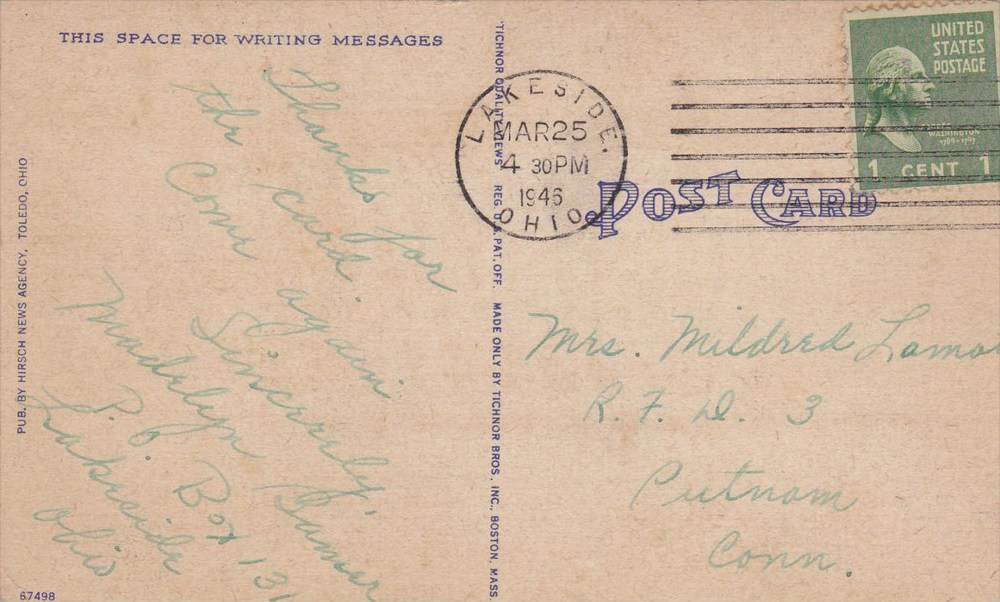 THIS SPACE FOR WRITING MESSAGES
Thanks for
the card.
Come again
Sincerely,
Madelyn
P. O. Box 131
Lakeside
Ohio
PUB. BY HIRSCH NEWS AGENCY, TOLEDO, OHIO
67498
"TICHNOR QUALITY VIEWS" REG. U. S. PAT. OFF. MADE ONLY BY TICHNOR BROS., INC., BOSTON, MASS.
LAKESIDE,
MAR 25
4 30 PM
1946
OHIO
UNITED
STATES
POSTAGE
GEORGE
WASHINGTON
1789-1797
1 CENT 1
POST CARD
Mrs. Mildred
R. F. D. 3
Putnam
Conn.